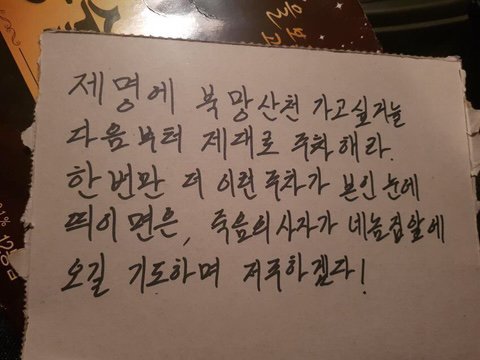 제명에 북망산천 가고싶거늘
다음부터 제대로 주차해라.
한번만 더 이런주차가 본인눈에
띄이면은, 죽음의사자가 네놈집앞에
오길 기도하며 저주하겠다!